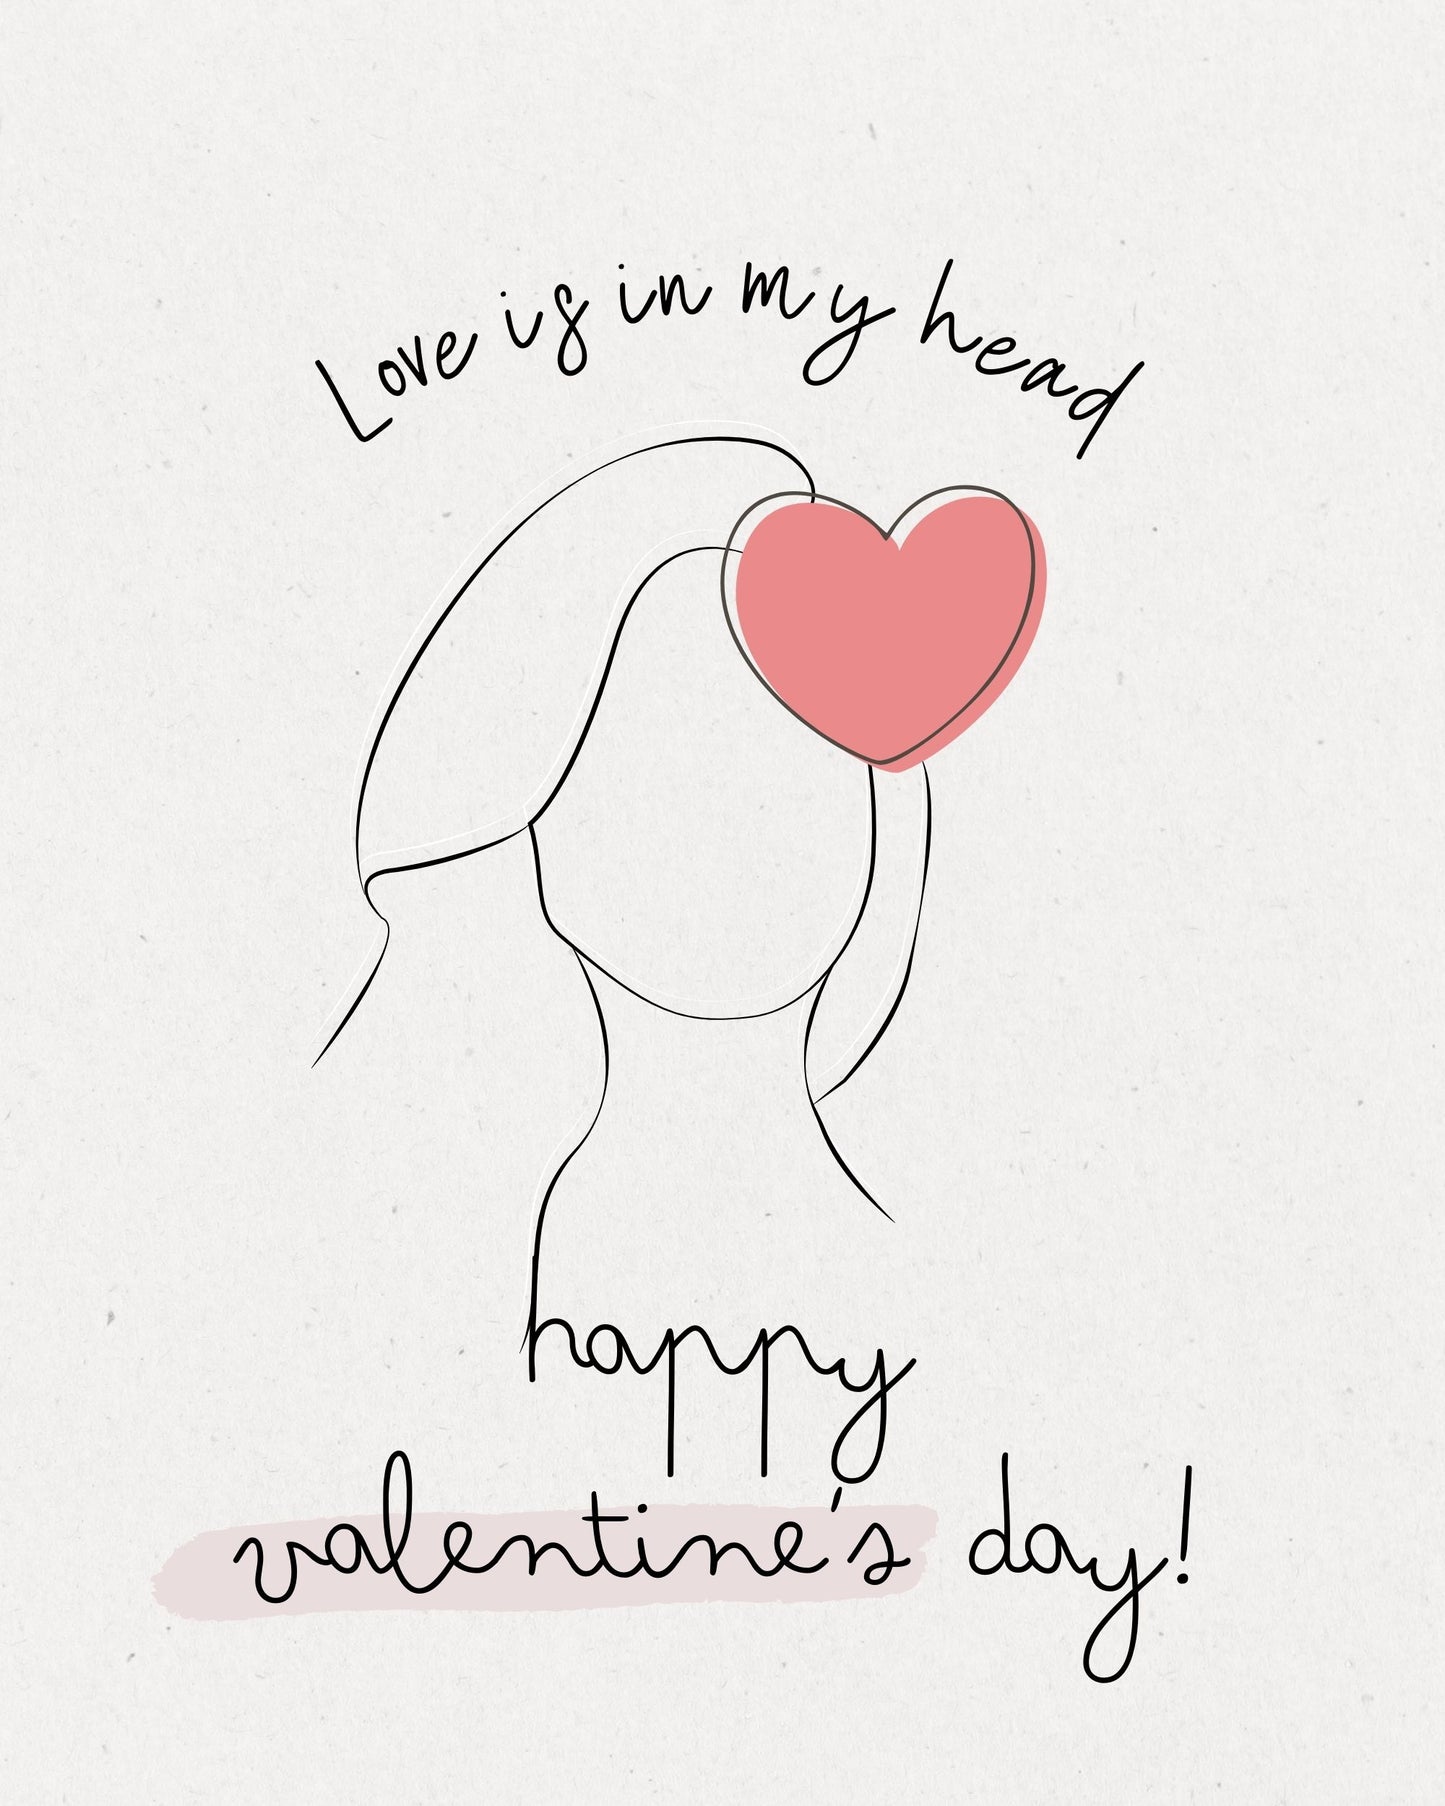 Love is in my head
happy
valentine's day!